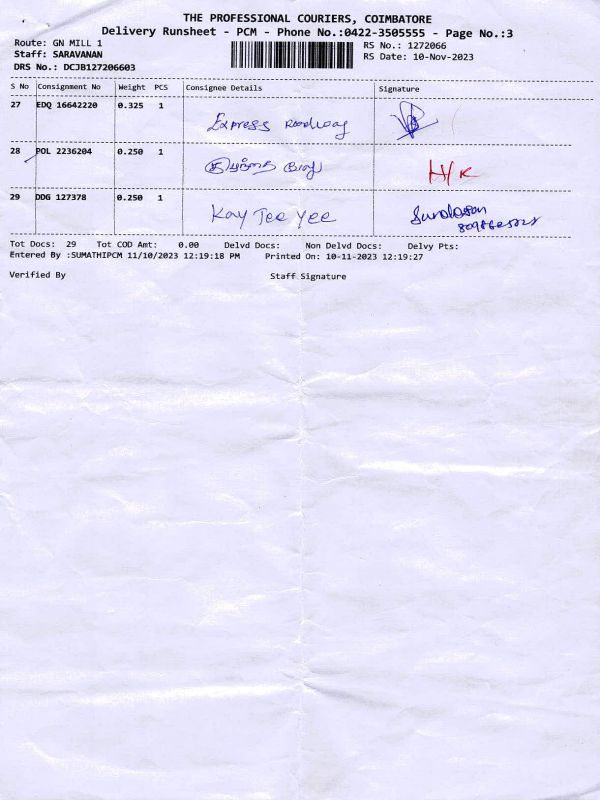 THE PROFESSIONAL COURIERS, COIMBATORE
Delivery Runsheet - PCM - Phone No.:0422-3505555 - Page No.:3
Route: GN MILL 1 RS No.: 1272066
Staff: SARAVANAN RS Date: 10-Nov-2023
DRS No.: DCJB127206603
S No Consignment No Weight PCS Consignee Details Signature
27 EDQ 16642220 0.325 1
Express Roadway
28 POL 2236204 0.250 1
H/K
29 DDG 127378 0.250 1
Kay Tee Yee
Tot Docs: 29 Tot COD Amt: 0.00 Delvd Docs: Non Delvd Docs: Delvy Pts:
Entered By :SUMATHIPCM 11/10/2023 12:19:18 PM Printed On: 10-11-2023 12:19:27
Verified By Staff Signature